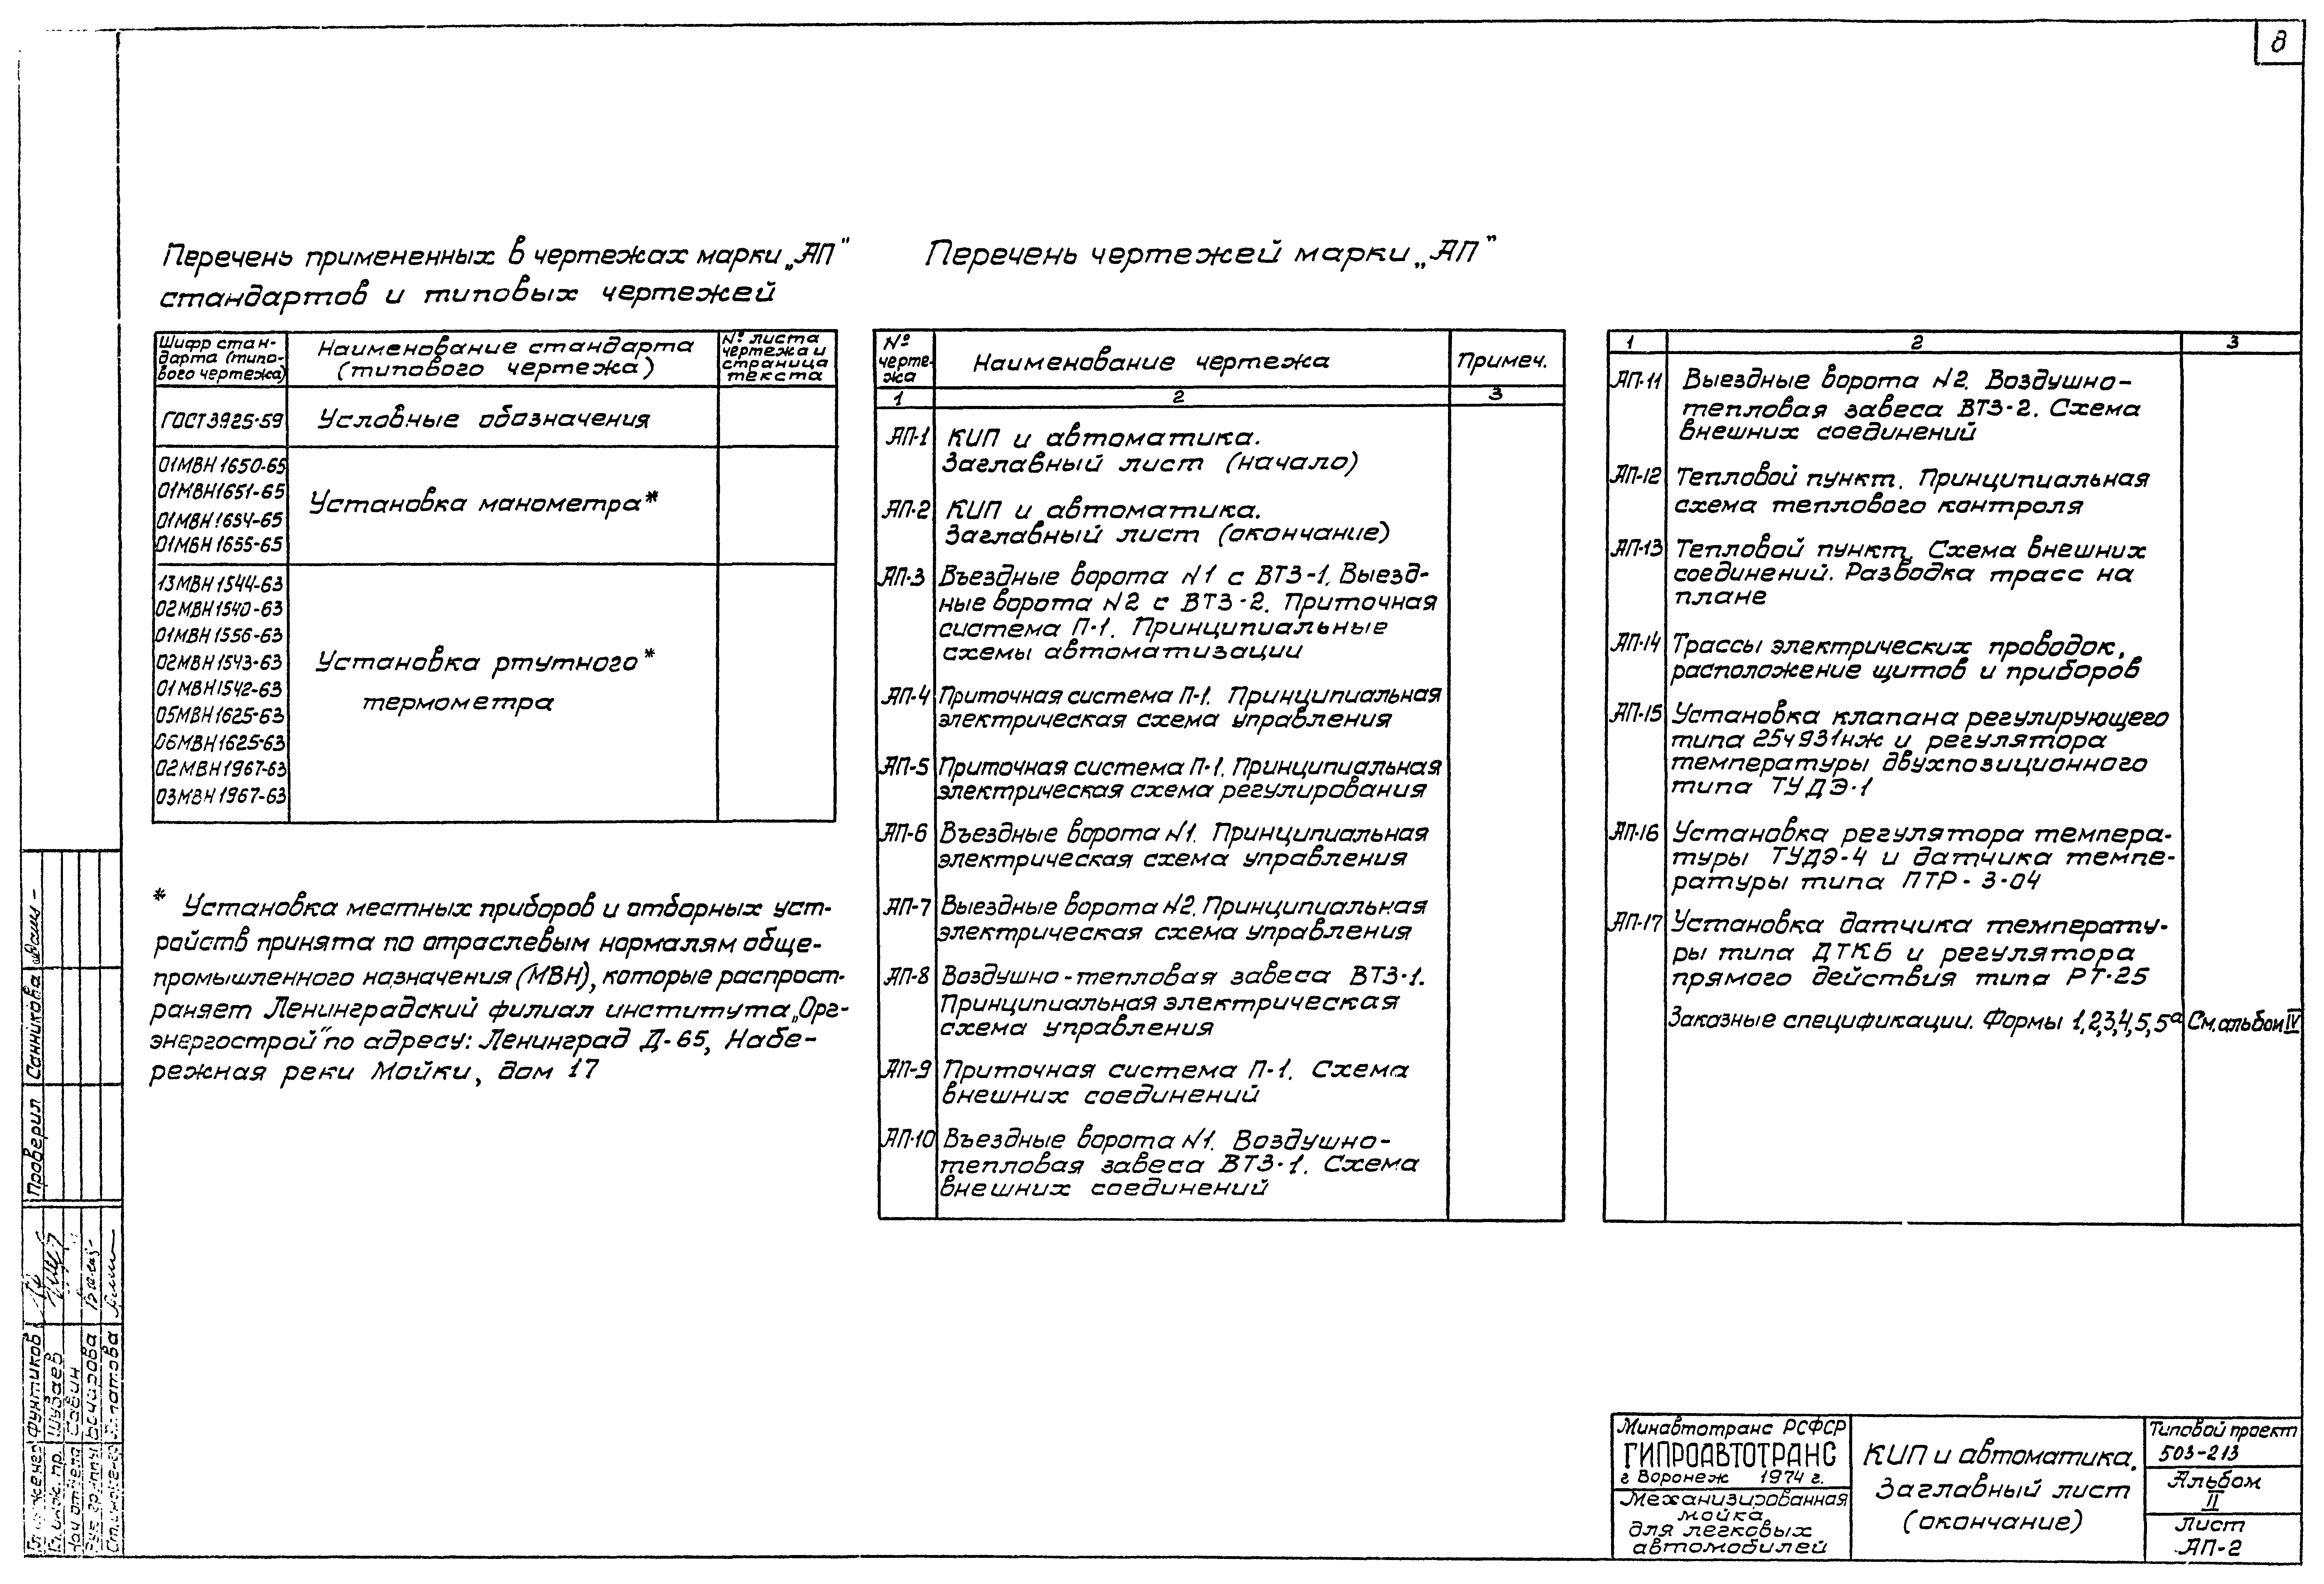 8
Перечень примененных в чертежах марки „АП"
стандартов и типовых чертежей
Шифр стан-
дарта (типо-
вого чертежа)
Наименование стандарта
(типового чертежа)
№ листа
чертежа и
страница
текста
ГОСТ 3925-59
Условные обозначения
01МВН 1650-65
01МВН1651-65
01МВН 1654-65
01МВН 1655-65
Установка манометра*
13МВН 1544-63
02МВН 1540-63
01МВН 1556-63
02МВН 1543-63
01МВН 1542-63
05МВН 1625-63
06МВН 1625-63
02МВН 1967-63
03МВН 1967-63
Установка ртутного*
термометра
* Установка местных приборов и отборных уст-
ройств принята по отраслевым нормалям обще-
промышленного назначения (МВН), которые распрост-
раняет Ленинградский филиал института „Орг-
энергострой" по адресу: Ленинград Д-65, Набе-
режная реки Мойки, дом 17
Перечень чертежей марки „АП"
№
черте-
жа
Наименование чертежа
Примеч.
1
2
3
АП-1
КИП и автоматика.
Заглавный лист (начало)
АП-2
КИП и автоматика.
Заглавный лист (окончание)
АП-3
Въездные ворота N1 с ВТЗ-1. Выезд-
ные ворота N2 с ВТЗ-2. Приточная
система П-1. Принципиальные
схемы автоматизации
АП-4
Приточная система П-1. Принципиальная
электрическая схема управления
АП-5
Приточная система П-1. Принципиальная
электрическая схема регулирования
АП-6
Въездные ворота N1. Принципиальная
электрическая схема управления
АП-7
Выездные ворота N2. Принципиальная
электрическая схема управления
АП-8
Воздушно-тепловая завеса ВТЗ-1.
Принципиальная электрическая
схема управления
АП-9
Приточная система П-1. Схема
внешних соединений
АП-10
Въездные ворота N1. Воздушно-
тепловая завеса ВТЗ-1. Схема
внешних соединений
1
2
3
АП-11
Выездные ворота N2. Воздушно-
тепловая завеса ВТЗ-2. Схема
внешних соединений
АП-12
Тепловой пункт. Принципиальная
схема теплового контроля
АП-13
Тепловой пункт. Схема внешних
соединений. Разводка трасс на
плане
АП-14
Трассы электрических проводок,
расположение щитов и приборов
АП-15
Установка клапана регулирующего
типа 25ч931нж и регулятора
температуры двухпозиционного
типа ТУДЭ-1
АП-16
Установка регулятора темпера-
туры ТУДЭ-4 и датчика темпе-
ратуры типа ПТР-3-04
АП-17
Установка датчика температу-
ры типа ДТКБ и регулятора
прямого действия типа РТ-25
Заказные спецификации. Формы 1,2,3,4,5,5а
См. альбом IV
Проверил Санникова
Функтиков
Гл. инж. пр. Шузаев
Нач отдела Савин
Рук. группы
Минавтотранс РСФСР
ГИПРОАВТОТРАНС
г Воронеж 1974 г.
Механизированная
мойка
для легковых
автомобилей
КИП и автоматика.
Заглавный лист
(окончание)
Типовой проект
503-213
Альбом
II
Лист
АП-2